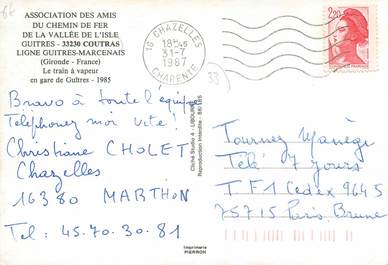 ASSOCIATION DES AMIS
DU CHEMIN DE FER
DE LA VALLÉE DE L'ISLE
GUITRES - 33230 COUTRAS
LIGNE GUITRES-MARCENAIS
(Gironde - France)
Le train à vapeur
en gare de Guîtres - 1985
16 CHAZELLES
18H45
31-7
1987
CHARENTE
2,20
33
Bravo à toute l'equipe
Téléphonez moi vite!
Christiane CHOLET
Chazelles
16380 MARTHON
Tel: 45.70.30.81
Cliché Studio 4 - LIBOURNE
Reproduction interdite - 86/185
Imprimerie
PIERRON
Tournez Manège
Télé 7 Jours
TF1 Cedex 9645
75715 Paris Brune